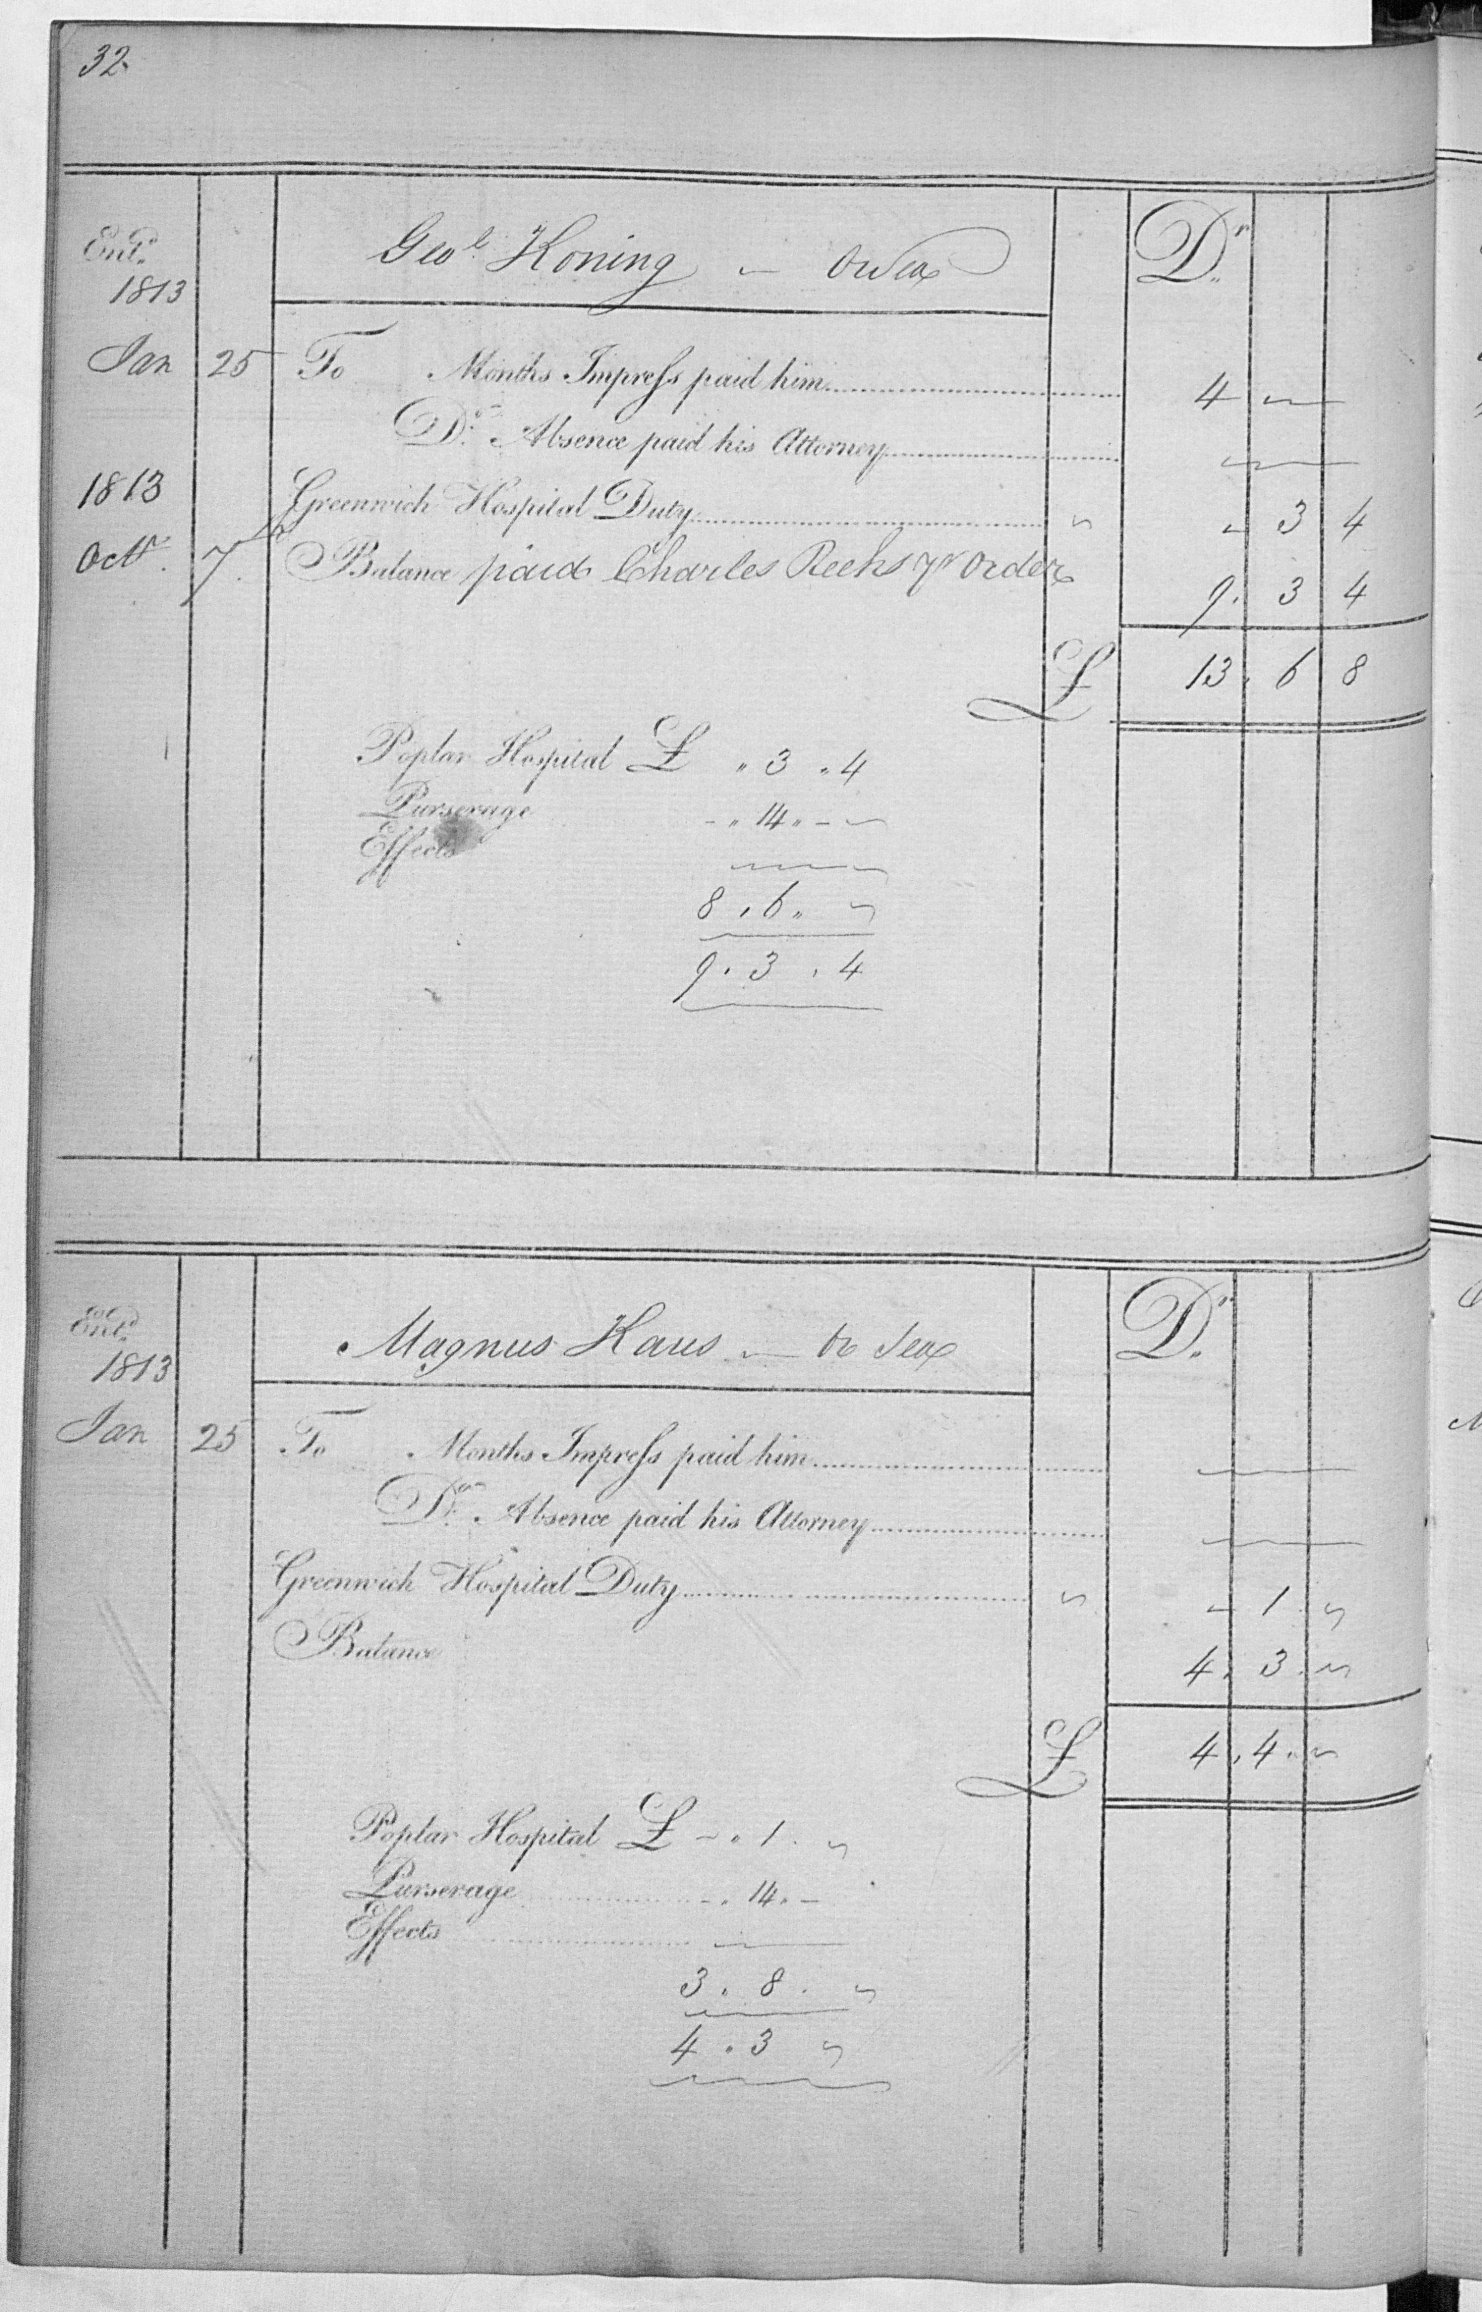 32
Ent.d
1813
Geo.e Koning — Or Sea
D.r
Jan 25 To Months Impress paid him 4 —
D.o Absence paid his Attorney —
1813
Greenwich Hospital Duty „ 3 4
Oct.r 7 Balance paid Charles Reeks pr Order 9 . 3 4
£ 13 . 6 8
Poplar Hospital £ „ 3 „ 4
Purserage - „ 14 „ -
Effects —
8 . 6 „
9 . 3 . 4
Ent.d
1813
Magnus Kaus — Or Sea
D.r
Jan 25 To Months Impress paid him —
D.o Absence paid his Attorney —
Greenwich Hospital Duty - 1 „
Balance 4 . 3 . „
£ 4 . 4 . „
Poplar Hospital £ - „ 1 . „
Purserage - „ 14 „ -
Effects —
3 . 8 . „
4 . 3 „